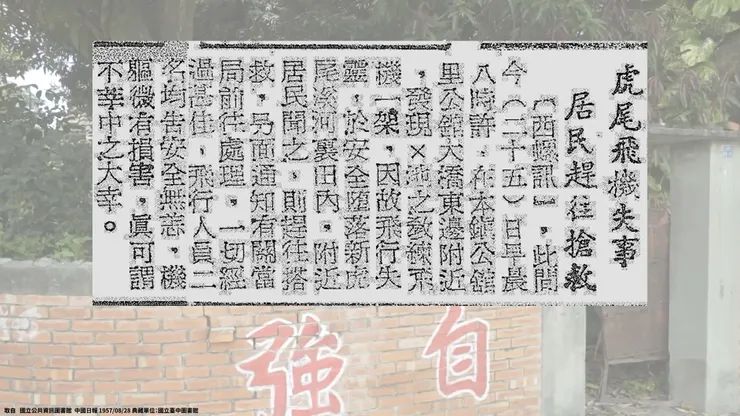 虎尾飛機失事
居民趕往搶救
〔西螺訊〕,此間
今(二十五)日早晨
八時許,在本鎮公館
里公館大橋東邊附近
,發現×地之教練飛
機一架,因故飛行失
靈,於安全墮落新虎
尾溪河裏田內,附近
居民聞之,則趕往搭
救,另面通知有關當
局前往處理,一切經
過甚佳,飛行人員二
名均告安全無恙,機
軀微有損害,眞可謂
不幸中之大幸。
自強
取自 國立公共資訊圖書館 中國日報 1957/08/28 典藏單位:國立臺中圖書館